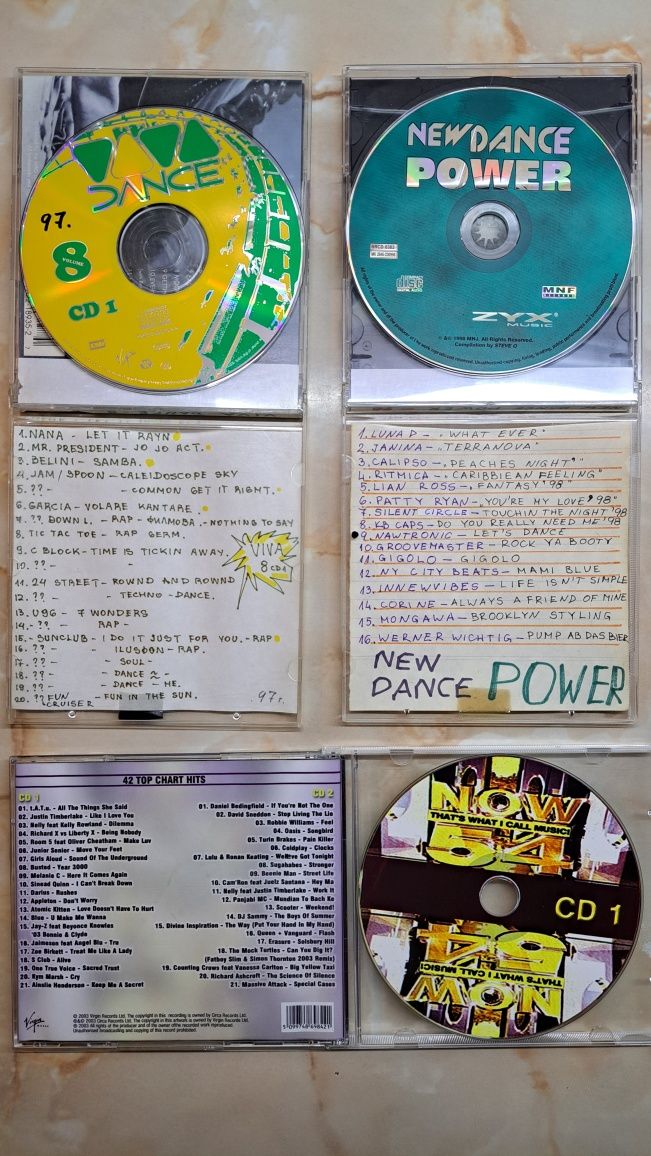 VIVA
DANCE
97.
8
VOLUME
CD 1
NEW DANCE
POWER
COMPACT
disc
DIGITAL AUDIO
MNF
RECORDS
ZYX
MUSIC
℗ & © 1998 MNJ. All Rights Reserved.
Compilation by STEVE O
1. NANA - LET IT RAYN
2. MR. PRESIDENT - JO JO ACT.
3. BELINI - SAMBA.
4. JAM/SPOON - CALEIDOSCOPE SKY
5. ?? - - COMMON GET IT RIGHT.
6. GARCIA - VOLARE KANTARE.
7. ?? DOWN L. - RAP - ФИАМОВА. - NOTHING TO SAY
8. TIC TAC TOE - RAP GERM.
9. C BLOCK - TIME IS TICKIN AWAY.
10. ?? - "
11. 24 STREET - ROUND AND ROUND
12. ?? - - TECHNO - DANCE.
13. U96 - 7 WONDERS
14. - ?? - RAP -
15. - SUNCLUB - I DO IT JUST FOR YOU. - RAP
16. ?? - " ILUSOON - RAP.
17. ?? - - SOUL -
18. ?? - - DANCE ~ -
19. ?? - - DANCE - ME.
20. ?? FUN - FUN IN THE SUN.
CRUISER
97г.
VIVA
8 CD1
1. LUNA D - „WHAT EVER"
2. JANINA - „TERRANOVA"
3. CALIPSO - „PEACHES NIGHT"
4. RITMICA - „CARIBBIEAN FEELING"
5. LIAN ROSS - „FANTASY '98"
6. PATTY RYAN - „YOU'RE MY LOVE '98"
7. SILENT CIRCLE - TOUCHIN THE NIGHT '98
8. KB CAPS - DO YOU REALLY NEED ME '98
9. NAWTRONIC - LET'S DANCE
10. GROOVEMASTER - ROCK YA BOOTY
11. GIGOLO - GIGOLO
12. NY CITY BEATS - MAMI BLUE
13. INNEWVIBES - LIFE IS N'T SIMPLE
14. CORINE - ALWAYS A FRIEND OF MINE
15. MONGAWA - BROOKLYN STYLING
16. WERNER WICHTIG - PUMP AB DAS BIER
NEW
DANCE POWER
42 TOP CHART HITS
CD 1
01. t.A.T.u. - All The Things She Said
02. Justin Timberlake - Like I Love You
03. Nelly feat Kelly Rowland - Dilemma
04. Richard X vs Liberty X - Being Nobody
05. Room 5 feat Oliver Cheatham - Make Luv
06. Junior Senior - Move Your Feet
07. Girls Aloud - Sound Of The Underground
08. Busted - Year 3000
09. Melanie C - Here It Comes Again
10. Sinead Quinn - I Can't Break Down
11. Darius - Rushes
12. Appleton - Don't Worry
13. Atomic Kitten - Love Doesn't Have To Hurt
14. Blue - U Make Me Wanna
15. Jay-Z feat Beyonce Knowles
'03 Bonnie & Clyde
16. Jaimeson feat Angel Blu - Tru
17. Zoe Birkett - Treat Me Like A Lady
18. S Club - Alive
19. One True Voice - Sacred Trust
20. Kym Marsh - Cry
21. Ainslie Henderson - Keep Me A Secret
CD 2
01. Daniel Bedingfield - If You're Not The One
02. David Sneddon - Stop Living The Lie
03. Robbie Williams - Feel
04. Oasis - Songbird
05. Turin Brakes - Pain Killer
06. Coldplay - Clocks
07. Lulu & Ronan Keating - We've Got Tonight
08. Sugababes - Stronger
09. Beenie Man - Street Life
10. Cam'Ron feat Juelz Santana - Hey Ma
11. Nelly feat Justin Timberlake - Work It
12. Panjabi MC - Mundian To Bach Ke
13. Scooter - Weekend!
14. DJ Sammy - The Boys Of Summer
15. Divine Inspiration - The Way (Put Your Hand In My Hand)
16. Queen + Vanguard - Flash
17. Erasure - Solsbury Hill
18. The Mock Turtles - Can You Dig It?
(Fatboy Slim & Simon Thornton 2003 Remix)
19. Counting Crows feat Vanessa Carlton - Big Yellow Taxi
20. Richard Ashcroft - The Science Of Silence
21. Massive Attack - Special Cases
Virgin
© 2003 Virgin Records Ltd. The copyright in this recording is owned by Circa Records Ltd.
℗&© 2003 Circa Records Ltd. The copyright in this artwork is owned by Virgin Records Ltd.
© 2003 All rights of the producer and of the owner of the recorded work reproduced.
Unauthorised broadcasting and copying of this record prohibited.
5099748698421
NOW
THAT'S WHAT I CALL MUSIC!
54
CD 1
54
THAT'S WHAT I CALL MUSIC!
NOW